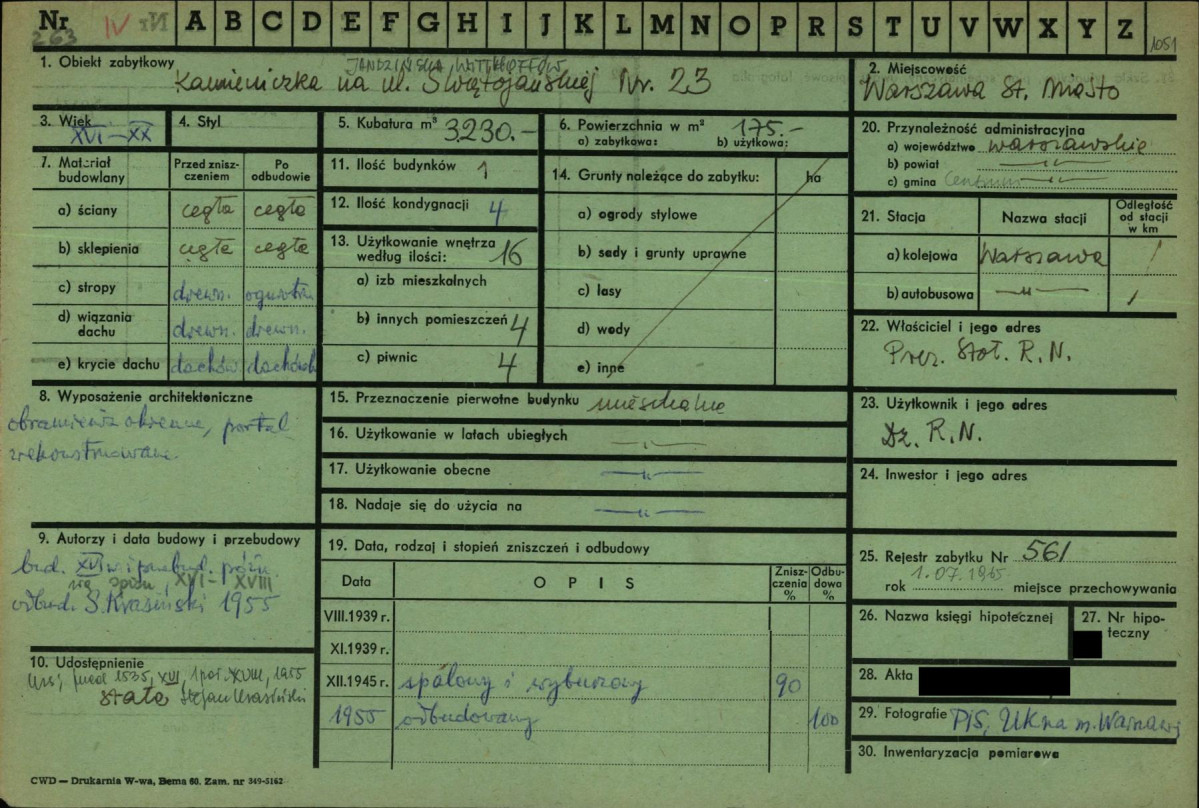 Nr IV A B C D E F G H I J K L M N O P R S T U V W X Y Z
263
1051
1. Obiekt zabytkowy JANDZIŃSKA, WITTHOFFÓW
Kamieniczka na ul. Świętojańskiej Nr. 23
2. Miejscowość
Warszawa St. Miasto
3. Wiek
XVI–XX
4. Styl
5. Kubatura m³ 3230.-
6. Powierzchnia w m² 175.-
a) zabytkowa: b) użytkowa:
7. Materiał budowlany
Przed zniszczeniem
Po odbudowie
a) ściany cegła cegła
b) sklepienia cegła cegła
c) stropy drewn. ogniotrw.
d) wiązania dachu drewn. drewn.
e) krycie dachu dachów. dachówk
8. Wyposażenie architektoniczne
obramienia okienne, portal
zrekonstruowane.
9. Autorzy i data budowy i przebudowy
bud. XVI w i przebud. późn.
XVI - XVIII
odbud. S. Krasiński 1955
10. Udostępnienie
przed 1535, XVI, 1 poł. XVIII, 1955
stałe Stefan Krasiński
11. Ilość budynków 1
12. Ilość kondygnacji 4
13. Użytkowanie wnętrza
według ilości: 16
a) izb mieszkalnych
b) innych pomieszczeń 4
c) piwnic 4
14. Grunty należące do zabytku: ha
a) ogrody stylowe
b) sady i grunty uprawne
c) lasy
d) wody
e) inne
15. Przeznaczenie pierwotne budynku mieszkalne
16. Użytkowanie w latach ubiegłych —„—
17. Użytkowanie obecne —„—
18. Nadaje się do użycia na —„—
19. Data, rodzaj i stopień zniszczeń i odbudowy
Data OPIS Zniszczenia % Odbudowa %
VIII.1939 r.
XI.1939 r.
XII.1945 r. spalony i wyburzony 90
1955 odbudowany 100
20. Przynależność administracyjna
a) województwo warszawskie
b) powiat —„—
c) gmina Centrum —„—
21. Stacja Nazwa stacji Odległość od stacji w km
a) kolejowa Warszawa /
b) autobusowa —„— /
22. Właściciel i jego adres
Prez. Stoł. R.N.
23. Użytkownik i jego adres
Dz. R.N.
24. Inwestor i jego adres
25. Rejestr zabytku Nr 561
rok 1.07.1965 miejsce przechowywania
26. Nazwa księgi hipotecznej
27. Nr hipoteczny
28. Akta
29. Fotografie PIS, UK na m. Warszawę
30. Inwentaryzacja pomiarowa
CWD — Drukarnia W-wa, Bema 60. Zam. nr 349-5162